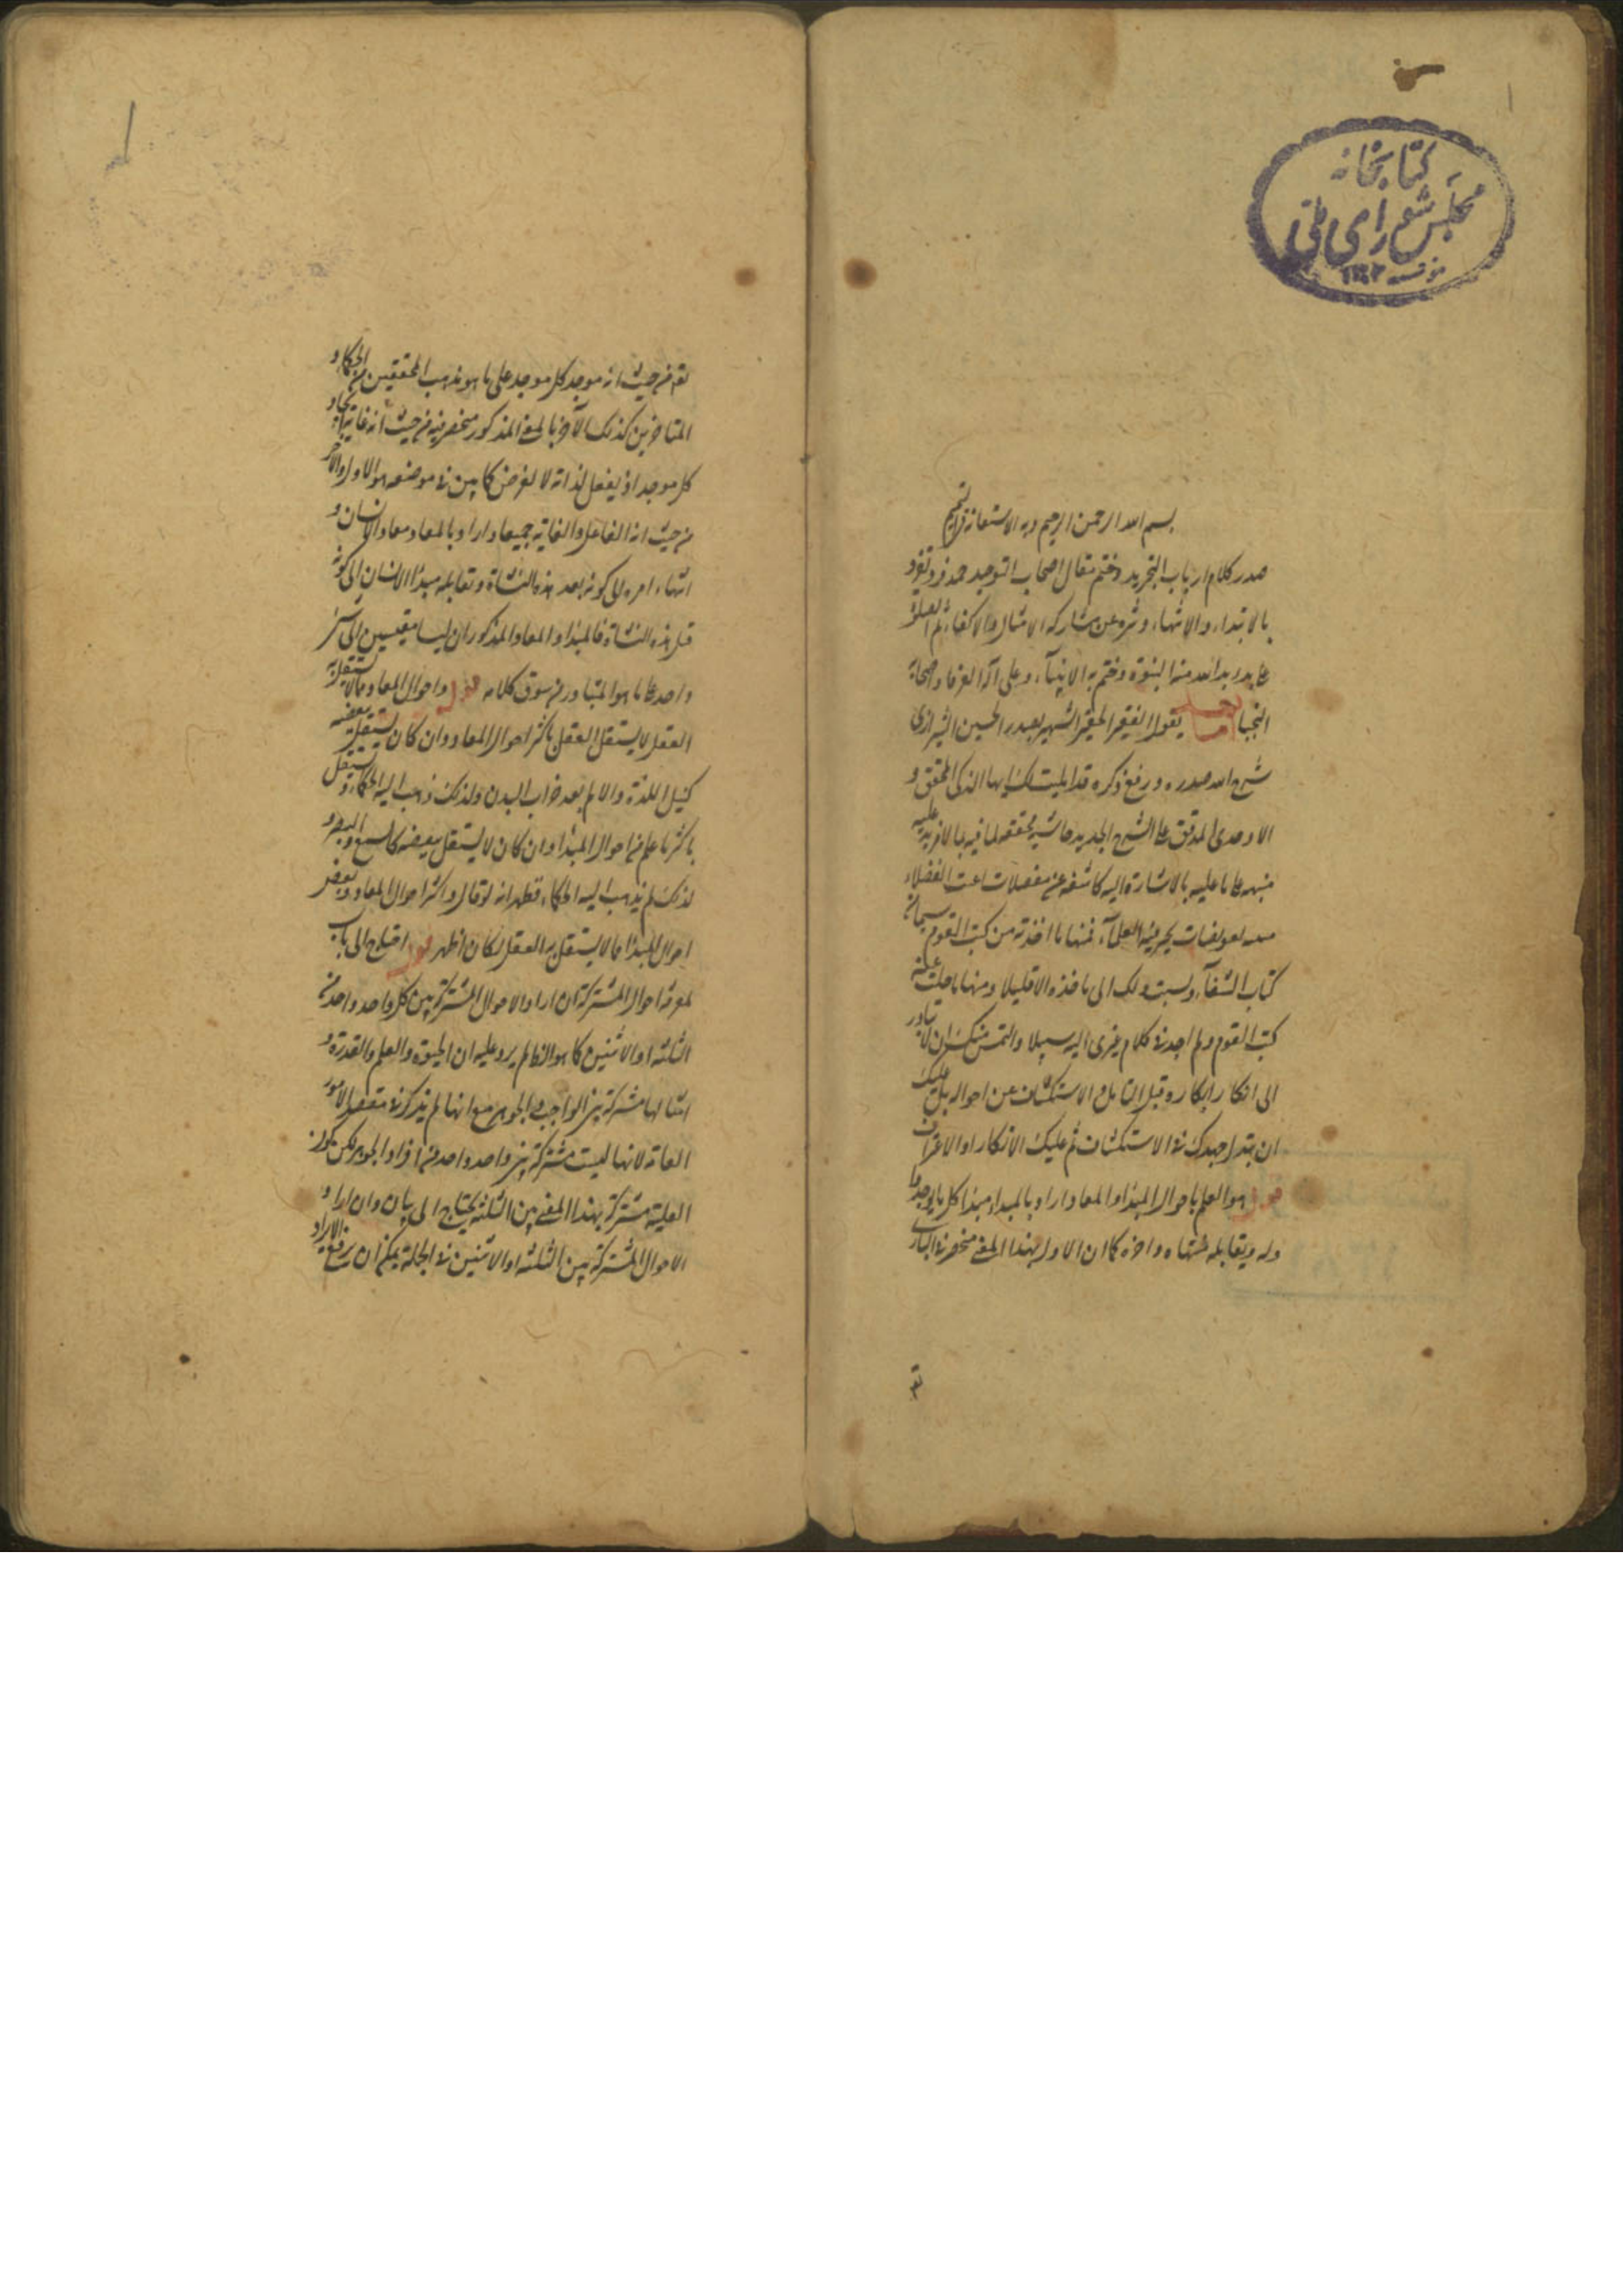 كتابخانه
مجلس شورای ملی
١٣٠٢
بسم الله الرحمن الرحيم وبه الاستعانة في التتميم
صدر كلام ارباب التجريد وختم مقال اصحاب التوحيد حمد فرد تفرد
بالابتداء والانتهاء وتنزه عن مشاركة الامثال والاكفاء ثم الصلوة
على من بدا الله منه النبوة وختم به الانبياء وعلى آله العرفاء وصحابه
النجباء يقول الفقير الحقير الشهير بصدر الحسين الشيرازي
شرح الله صدره ورفع ذكره قد امليت لك ايها الذكي المحقق و
الاوحدي المدقق على الشرح الجديد حاشية محققة لما فيه بما لا مزيد عليه
منبهة على ما عليه بالاشارة اليه كاشفة عن معضلات اعيت الفضلاء
يحير فيه العلماء فمنها ما اخذته من كتب القوم سيما
كتاب الشفاء ولست ادلك الى ماخذه الا قليلا ومنها ما خلت عنه
كتب القوم ولم اجد في كلام غيري اليه سبيلا والتمس منك ان لا تبادر
الى انكار ابكاره قبل التامل والاستكشاف عن احواله بل عليك
ان تبذل جهدك في الاستكشاف ثم عليك الانكار او الاعتراف
قوله هو العلم باحوال المبدا والمعاد اراد بالمبدا مبدا كل ما يوجد و
له ويقابله منتهاه واخره كما ان الاول بهذا المعنى منحصر في الباري
تع
تع من حيث انه موجد كل موجد على ما هو مذهب المحققين من الحكماء و
المتاخرين كذلك الآخر بالمعنى المذكور منحصر فيه من حيث انه غاية ايجاد
كل موجد اذ يفعل لذاته لا لغرض كما بين في موضعه هو الاول والآخر
من حيث انه الفاعل والغاية جميعا واراد بالمعاد معاد الانسان و
انتهاء امره الى كونه بعد هذه النشاة وتقابله مبدا الانسان الى كونه
قبل هذه النشاة فالمبدا والمعاد المذكوران ليسا مقيسين الى شئ
واحد على ما هو المتبادر من سوق كلامه قوله واحوال المعاد مما لا يستقل به
العقل لا يستقل العقل باكثر احوال المعاد وان كان يستقل ببعضه
كنيل اللذة والالم بعد خراب البدن ولذلك ذهب اليه الحكماء ويستقل
باكثر ما علم من احوال المبدا وان كان لا يستقل ببعضه كالسمع والبصر و
لذلك لم يذهب اليه الحكماء فظهر انه لو قال واكثر احوال المعاد وبعض
احوال المبدا مما لا يستقل به العقل لكان اظهر قوله احتاج الى باب
لمعرفة احوال المشتركة ان اراد الاحوال المشتركة بين كل واحد واحد من
الثلثة او الاثنين كما هو الظاهر يرد عليه ان الحيوة والعلم والقدرة و
امثالها مشتركة بين الواجب والجوهر مع انها لم يذكر في مقصد الامور
العامة لانها ليست مشتركة بين واحد واحد من افراد الجوهر لكن كون
العلية مشتركة بهذا المعنى بين الثلثة يحتاج الى بيان وان اراد
الاحوال المشتركة بين الثلثة او الاثنين في الجملة يمكن ان يرفع الايراد